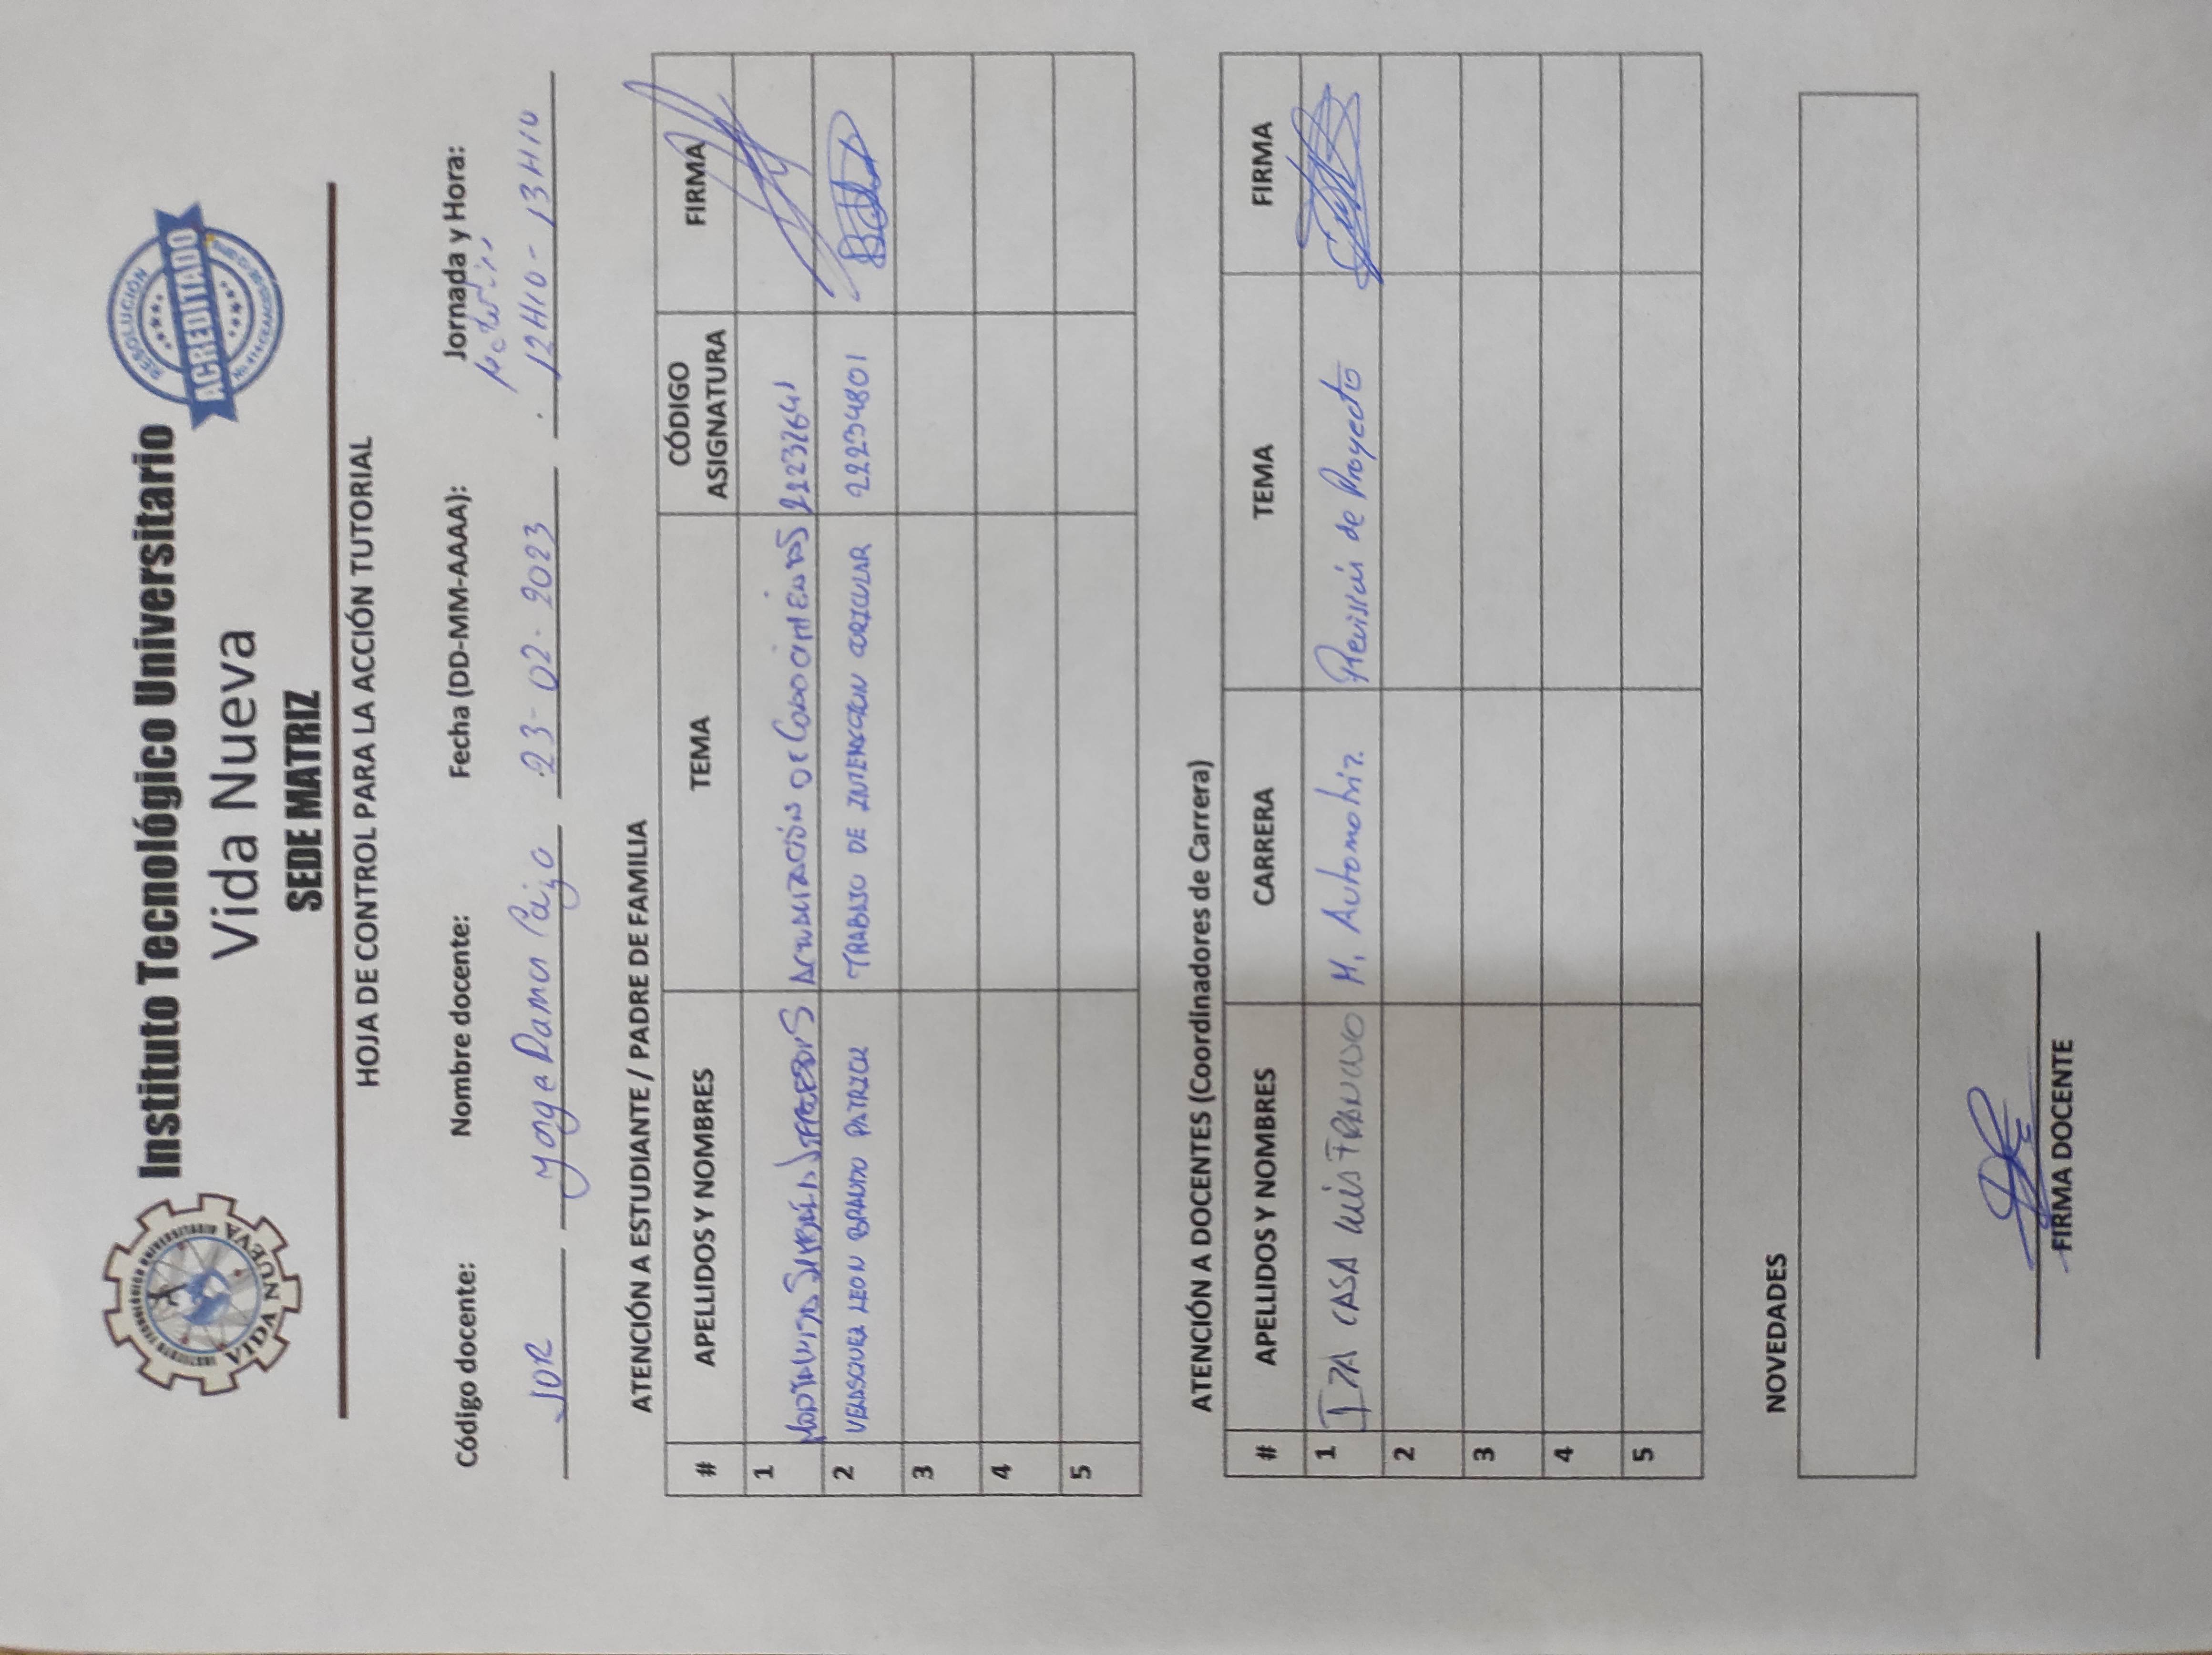 INSTITUTO TECNOLÓGICO UNIVERSITARIO
VIDA NUEVA
Instituto Tecnológico Universitario
Vida Nueva
SEDE MATRIZ
RESOLUCIÓN
ACREDITADO
HOJA DE CONTROL PARA LA ACCIÓN TUTORIAL
Código docente: Nombre docente: Fecha (DD-MM-AAAA): Jornada y Hora:
JOR Jorge Ramos 23-02-2023 12H10 - 13H10
ATENCIÓN A ESTUDIANTE / PADRE DE FAMILIA
# APELLIDOS Y NOMBRES TEMA CÓDIGO ASIGNATURA FIRMA
1 ACTUALIZACIÓN DE CONOCIMIENTOS
2 VELASQUEZ LEON PATRICK TRABAJO DE CORICULAR 22234801
3
4
5
ATENCIÓN A DOCENTES (Coordinadores de Carrera)
# APELLIDOS Y NOMBRES CARRERA TEMA FIRMA
1 IZA CASA LUIS FRANCISCO M. Automotriz. Revisión de Proyecto
2
3
4
5
NOVEDADES
FIRMA DOCENTE